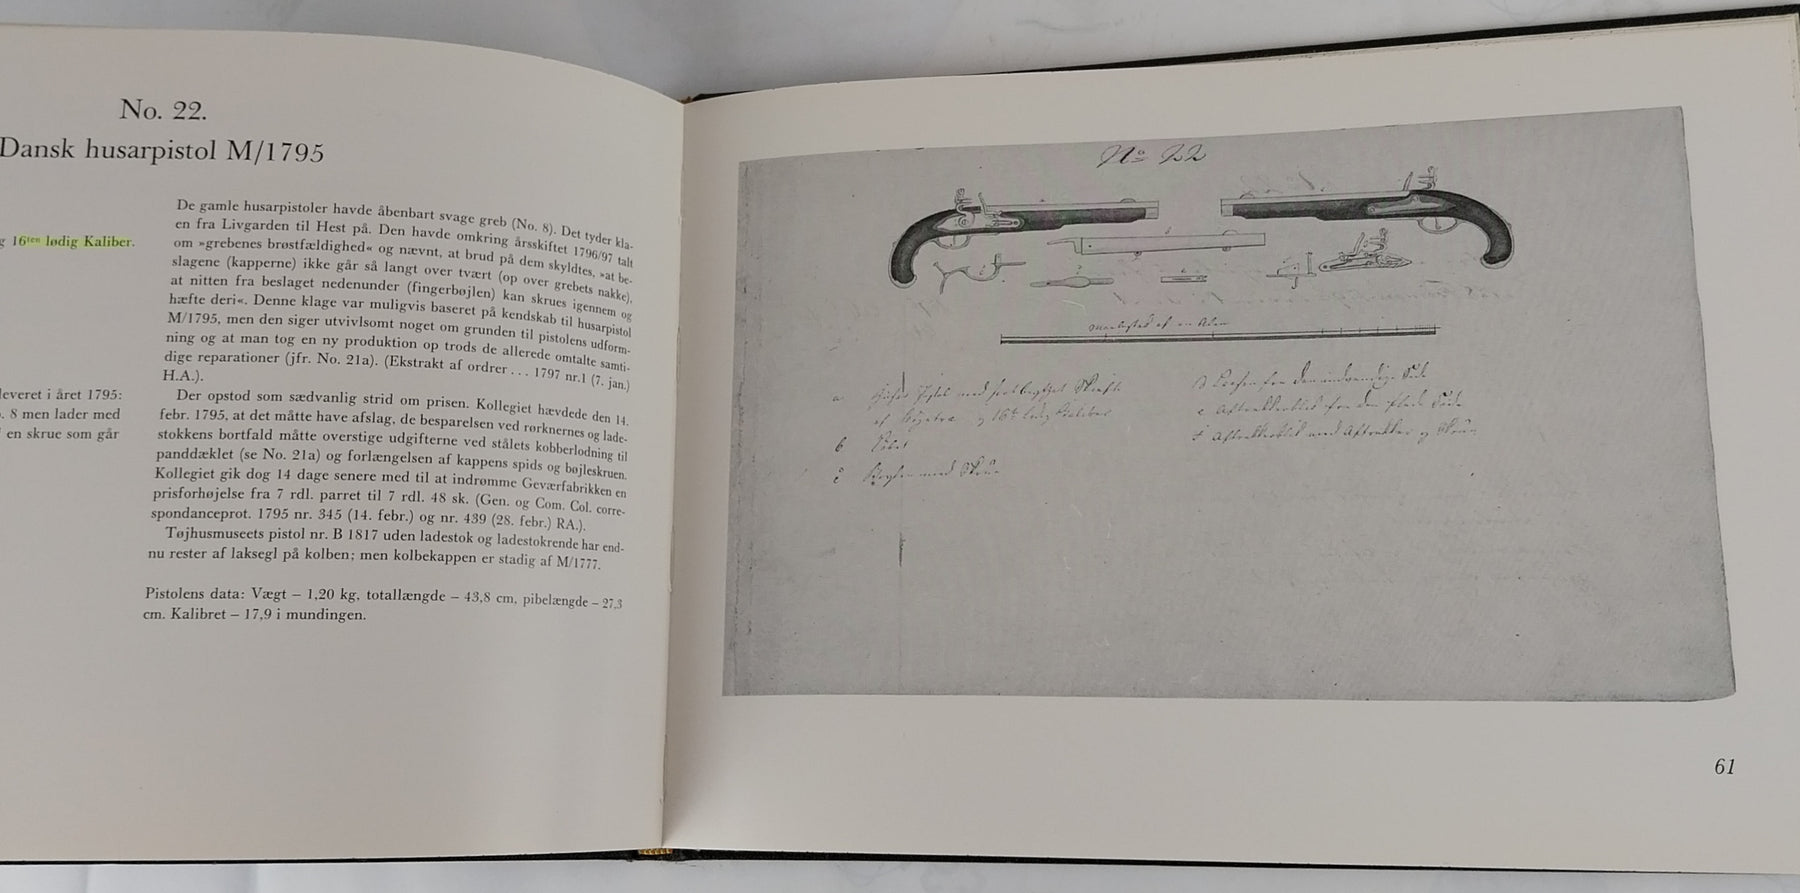 No. 22.
Dansk husarpistol M/1795
16ten lødig Kaliber.
leveret i året 1795:
. 8 men lader med
en skrue som går
De gamle husarpistoler havde åbenbart svage greb (No. 8). Det tyder kla-
en fra Livgarden til Hest på. Den havde omkring årsskiftet 1796/97 talt
om »grebenes brøstfældighed« og nævnt, at brud på dem skyldtes, »at be-
slagene (kapperne) ikke går så langt over tvært (op over grebets nakke),
at nitten fra beslaget nedenunder (fingerbøjlen) kan skrues igennem og
hæfte deri«. Denne klage var muligvis baseret på kendskab til husarpistol
M/1795, men den siger utvivlsomt noget om grunden til pistolens udform-
ning og at man tog en ny produktion op trods de allerede omtalte samti-
dige reparationer (jfr. No. 21a). (Ekstrakt af ordrer . . . 1797 nr.1 (7. jan.)
H.A.).
Der opstod som sædvanlig strid om prisen. Kollegiet hævdede den 14.
febr. 1795, at det måtte have afslag, de besparelsen ved rørknernes og lade-
stokkens bortfald måtte overstige udgifterne ved stålets kobberlodning til
panddæklet (se No. 21a) og forlængelsen af kappens spids og bøjleskruen.
Kollegiet gik dog 14 dage senere med til at indrømme Geværfabrikken en
prisforhøjelse fra 7 rdl. parret til 7 rdl. 48 sk. (Gen. og Com. Col. corre-
spondanceprot. 1795 nr. 345 (14. febr.) og nr. 439 (28. febr.) RA.).
Tøjhusmuseets pistol nr. B 1817 uden ladestok og ladestokrende har end-
nu rester af laksegl på kolben; men kolbekappen er stadig af M/1777.
Pistolens data: Vægt – 1,20 kg, totallængde – 43,8 cm, pibelængde – 27,3
cm. Kalibret – 17,9 i mundingen.
No 22
61